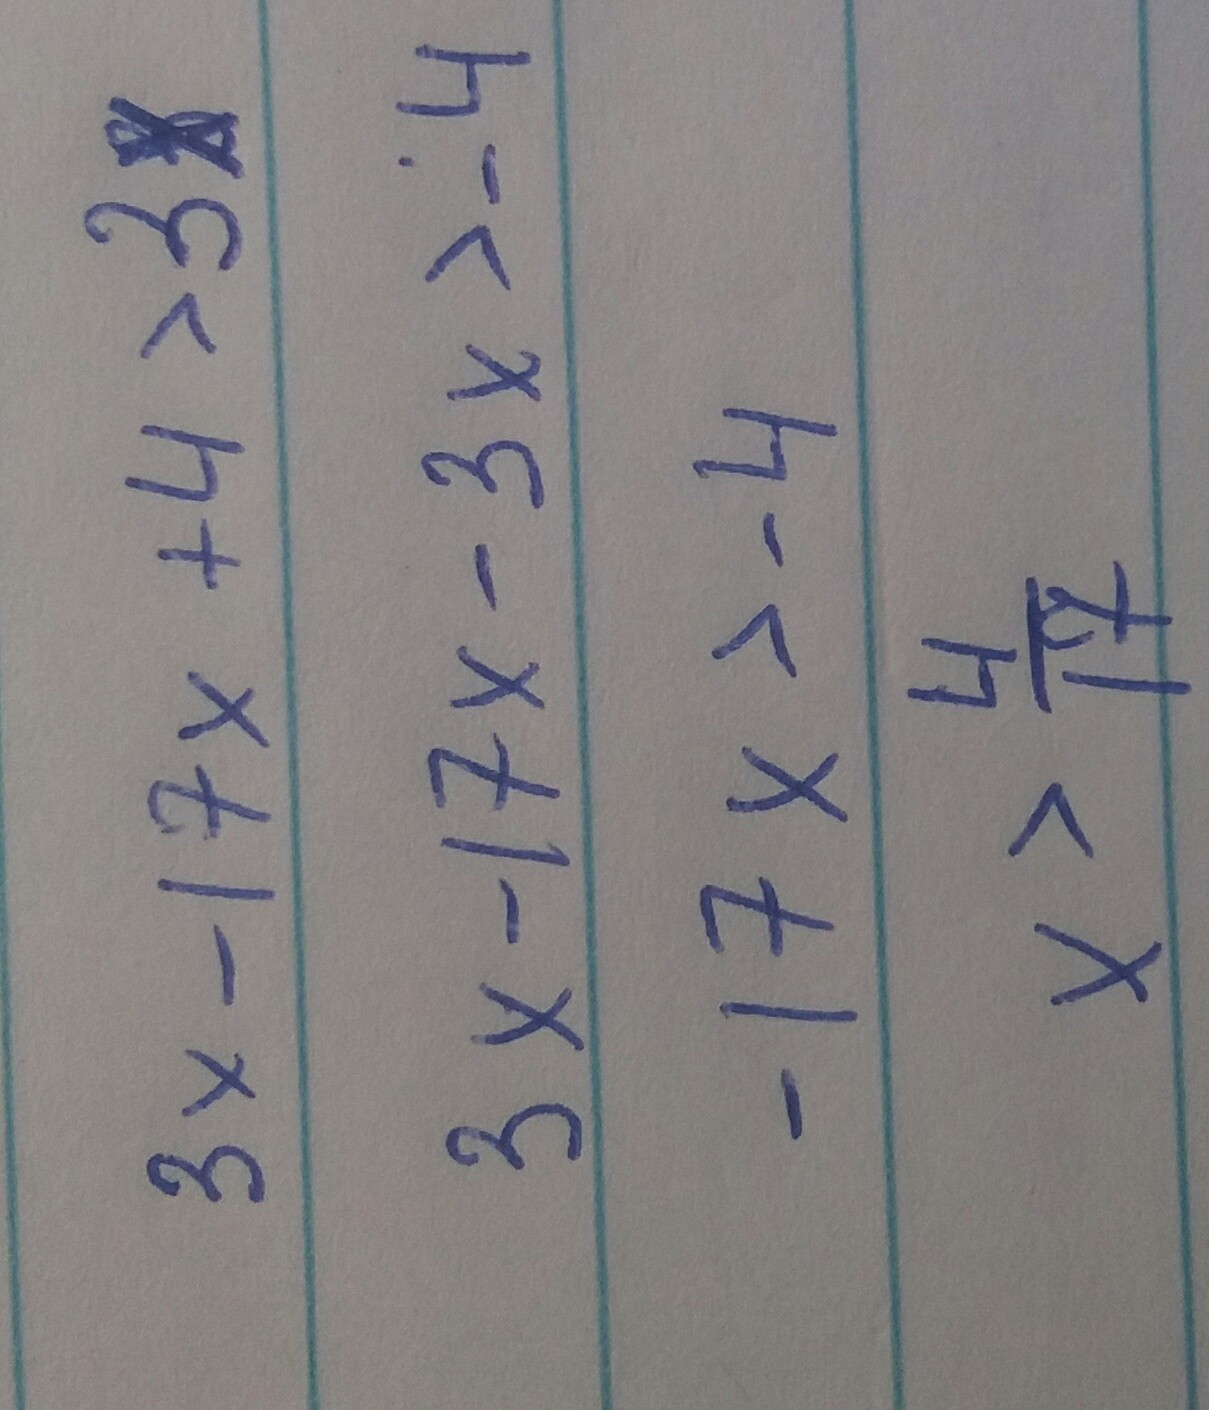 3x - 17x + 4 > 3
3x - 17x - 3x > -4
-17x > -4
x > 4/17